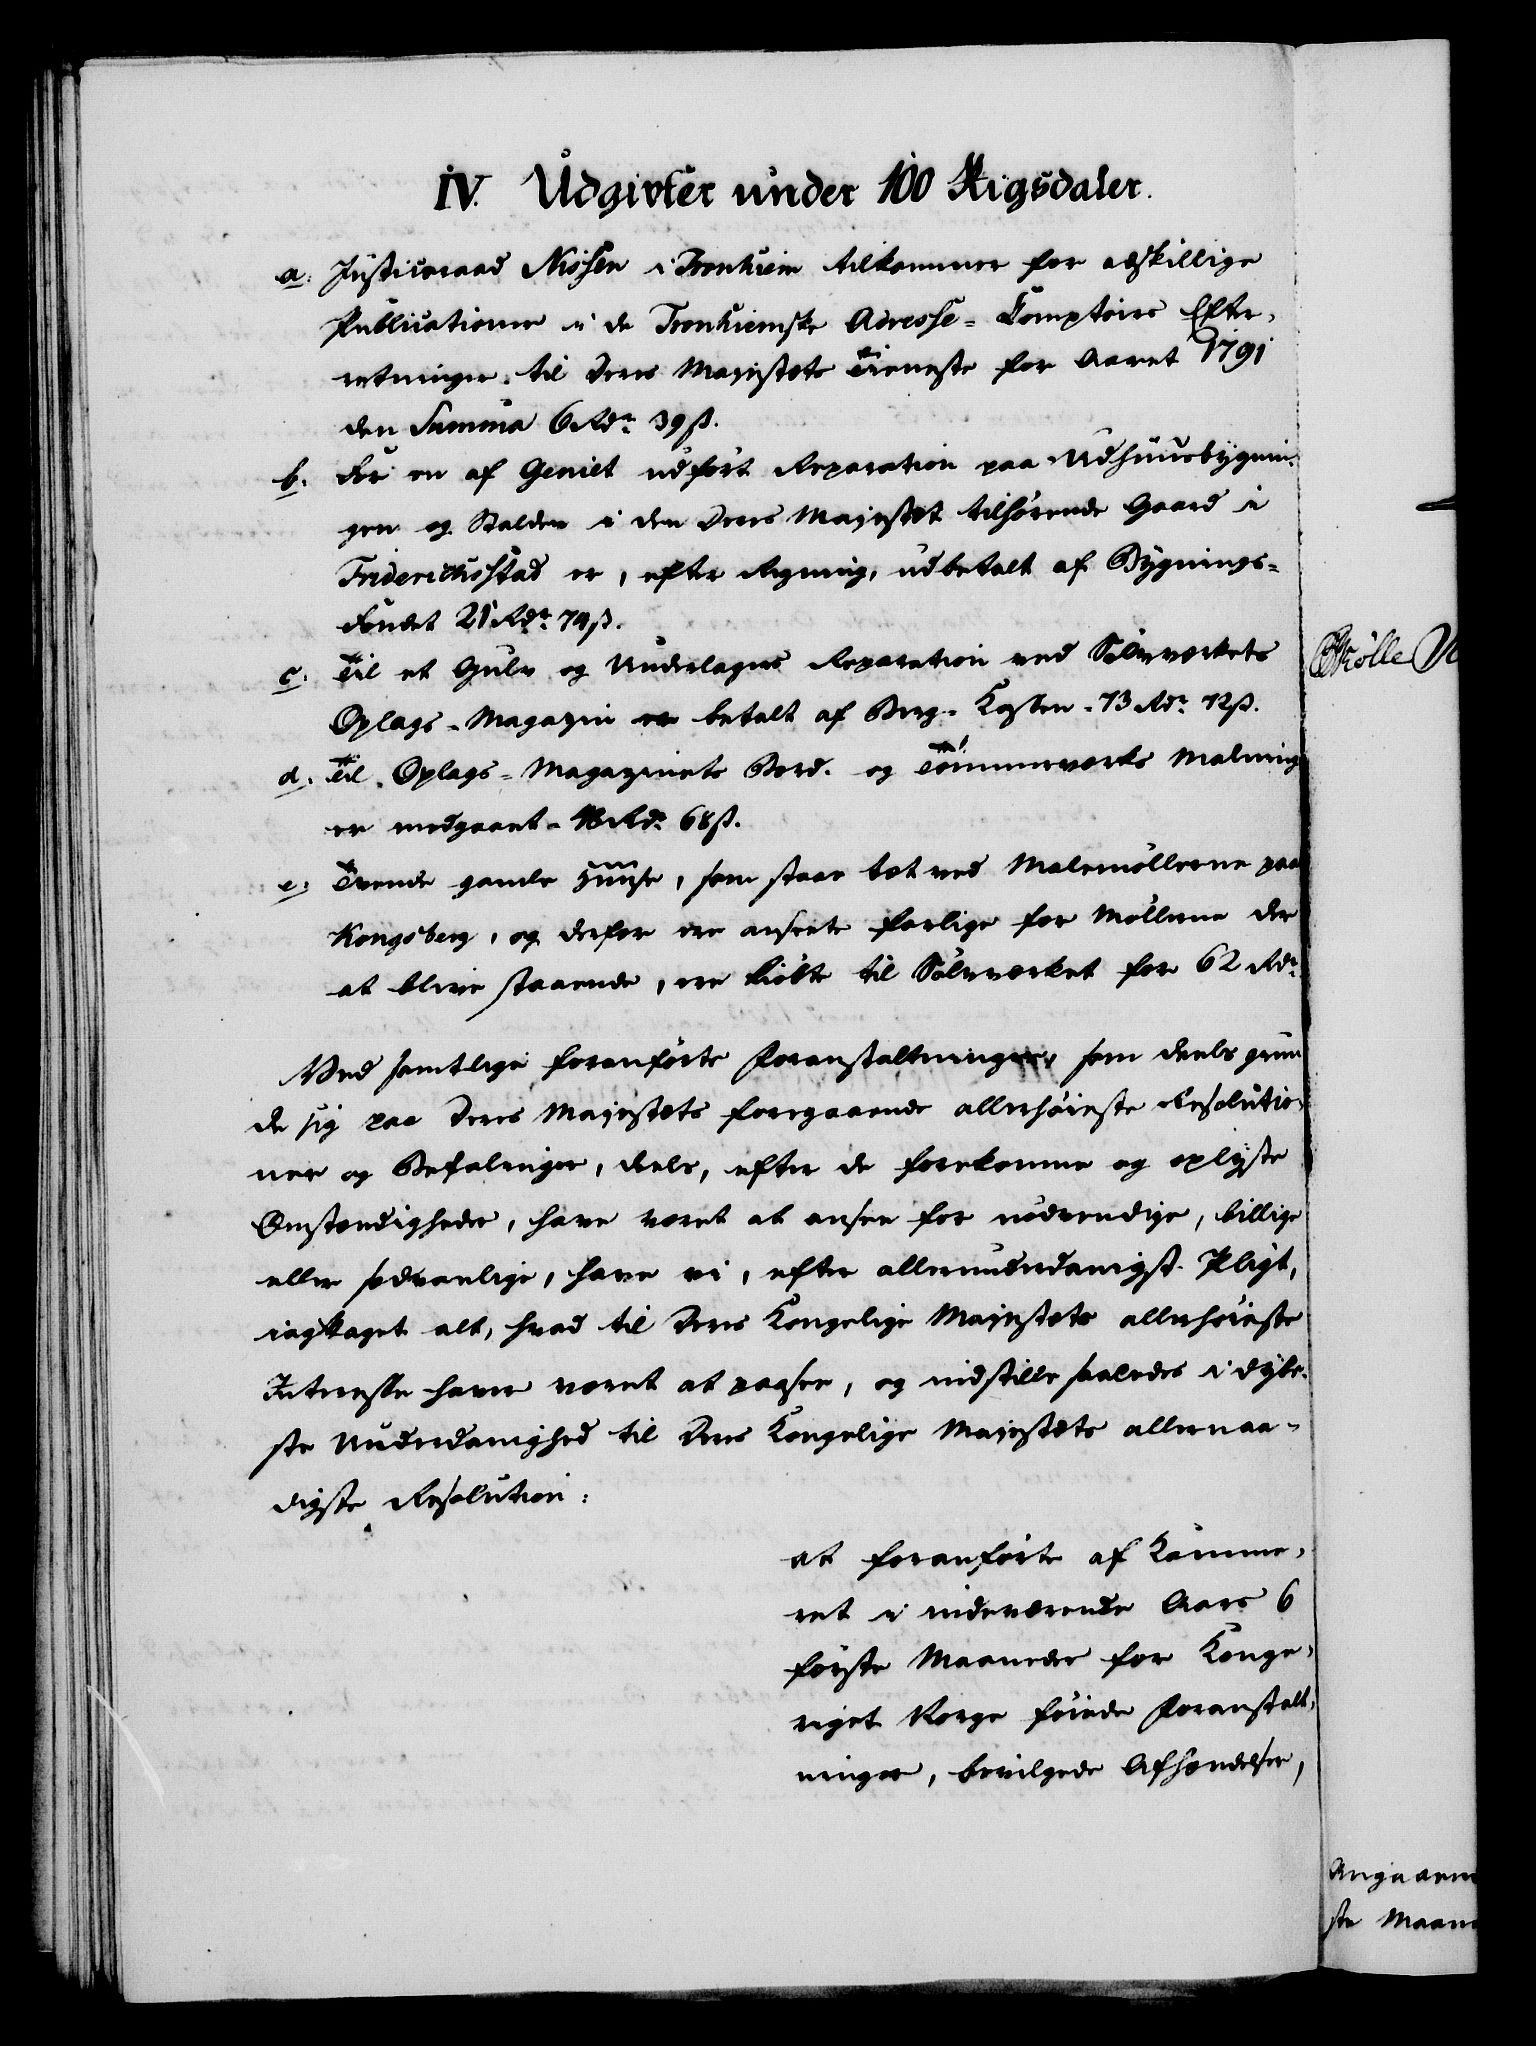 IV. Udgivter under 100 Rigsdaler.
a. Justiceraad Nissen i Tronhiem tilkommer for adskillige
Publicationer i de Tronhiemske Adresse-Comptoirs Efter-
retninger til Deres Majestæts Tieneste for Aaret 1791
den Summa 6 Rdr. 39 ß.
b. For en af Geniet udført Reparation paa Udhuusbygnin-
gen og Stalden i den Deres Majestæt tilhørende Gaard i
Friderichsstad er, efter Regning, udbetalt af Bygnings-
Fondet 21 Rdr. 74 ß.
c. Til et Gulv og Underlagers Reparation ved Sølvverkets
Oplags-Magazin er betalt af Berg-Kassen 73 Rdr. 72 ß.
d. Til Oplags-Magazinets Bord- og Tømmerverks Malning
er medgaaet 68 ß.
e. Tvende gamle Huuse, som staae tæt ved Malemøllerne paa
Kongsberg, og derfor ere ansete farlige for Møllerne der
at blive staaende, ere kiøbte til Sølvverket for 62 Rdr.
Ved samtlige foranførte Foranstaltninger, som deels grun-
de sig paa Deres Majestæts foregaaende allerhøieste Resolutio-
ner og Befalinger, deels, efter de forekomne og oplyste
Omstændigheder, have været at ansee for nødvendige, billige
eller sædvanlige, have vi, efter allerunderdanigst Pligt,
iagttaget alt, hvad til Deres Kongelige Majestæts allerhøieste
Interesse haver været at paasee, og indstille saaledes i dybe-
ste Underdanighed til Deres Kongelige Majestæts allernaa-
digste Resolution:
at foranførte af Kamme-
ret i indeværende Aars 6
første Maaneder for Konge-
riget Norge føiede Foranstalt-
ninger, bevilgede Afhændelser,
Angaaen
ste Maan